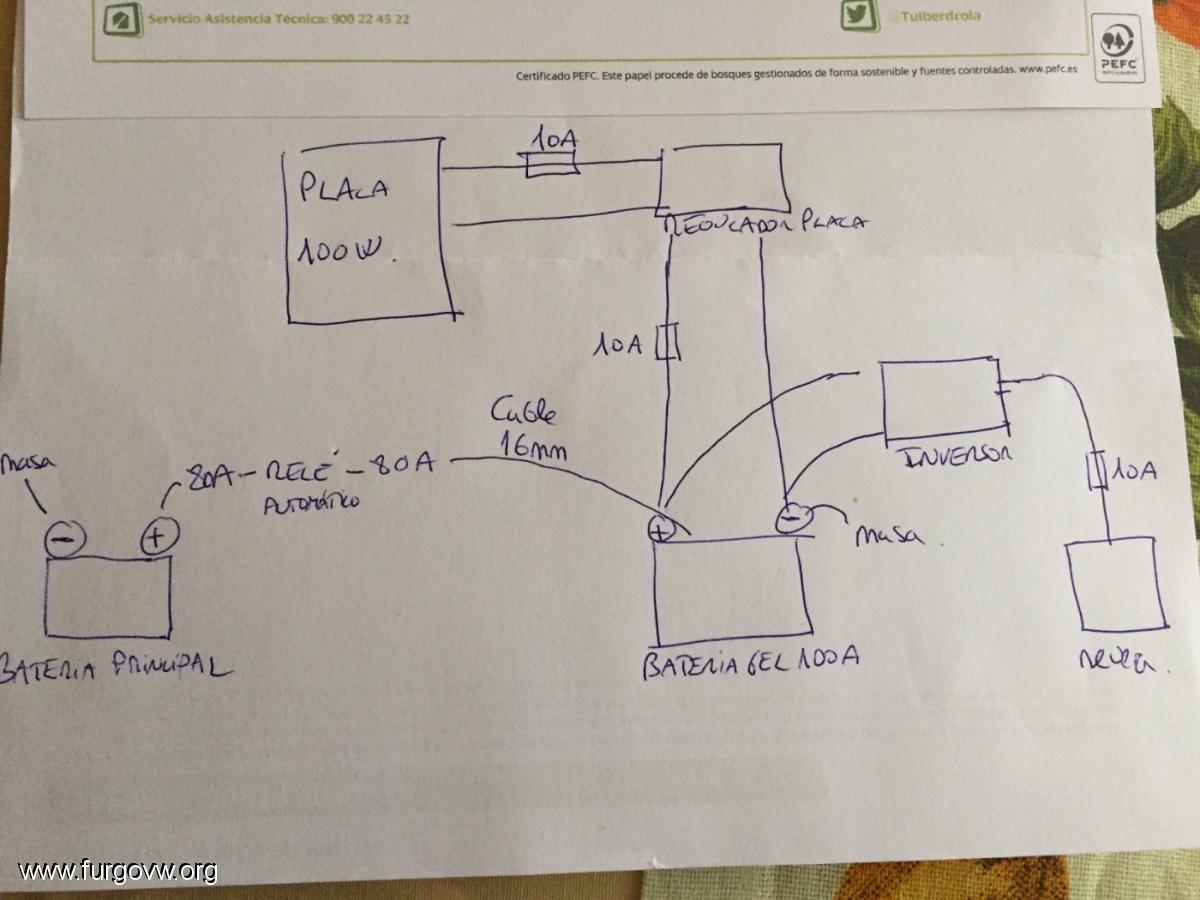 Servicio Asistencia Técnica: 900 22 45 22
@TuIberdrola
Certificado PEFC. Este papel procede de bosques gestionados de forma sostenible y fuentes controladas. www.pefc.es
PEFC
10A
PLACA
100W.
REGULADOR PLACA
10A
Cable
16mm
INVERSOR
10A
masa
80A - RELÉ - 80A
AUTOMÁTICO
- +
+ -
masa.
BATERIA PRINCIPAL
BATERIA GEL 100A
nevera.
www.furgovw.org